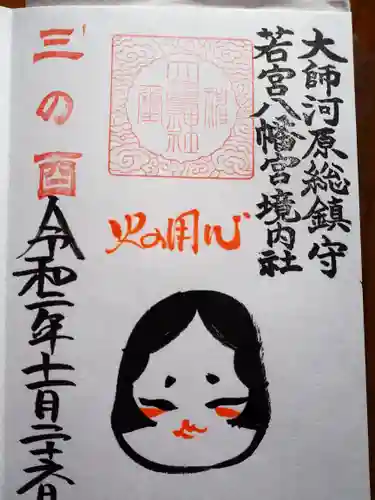 大師河原総鎮守
若宮八幡宮境内社
火の用心
三の酉
令和二年十一月二十六日